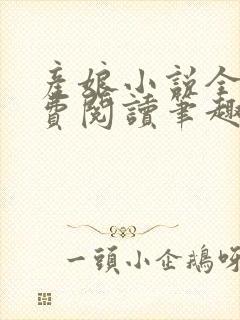 産娘小说全
費閱讀笔趣
一頭小企鵝呀